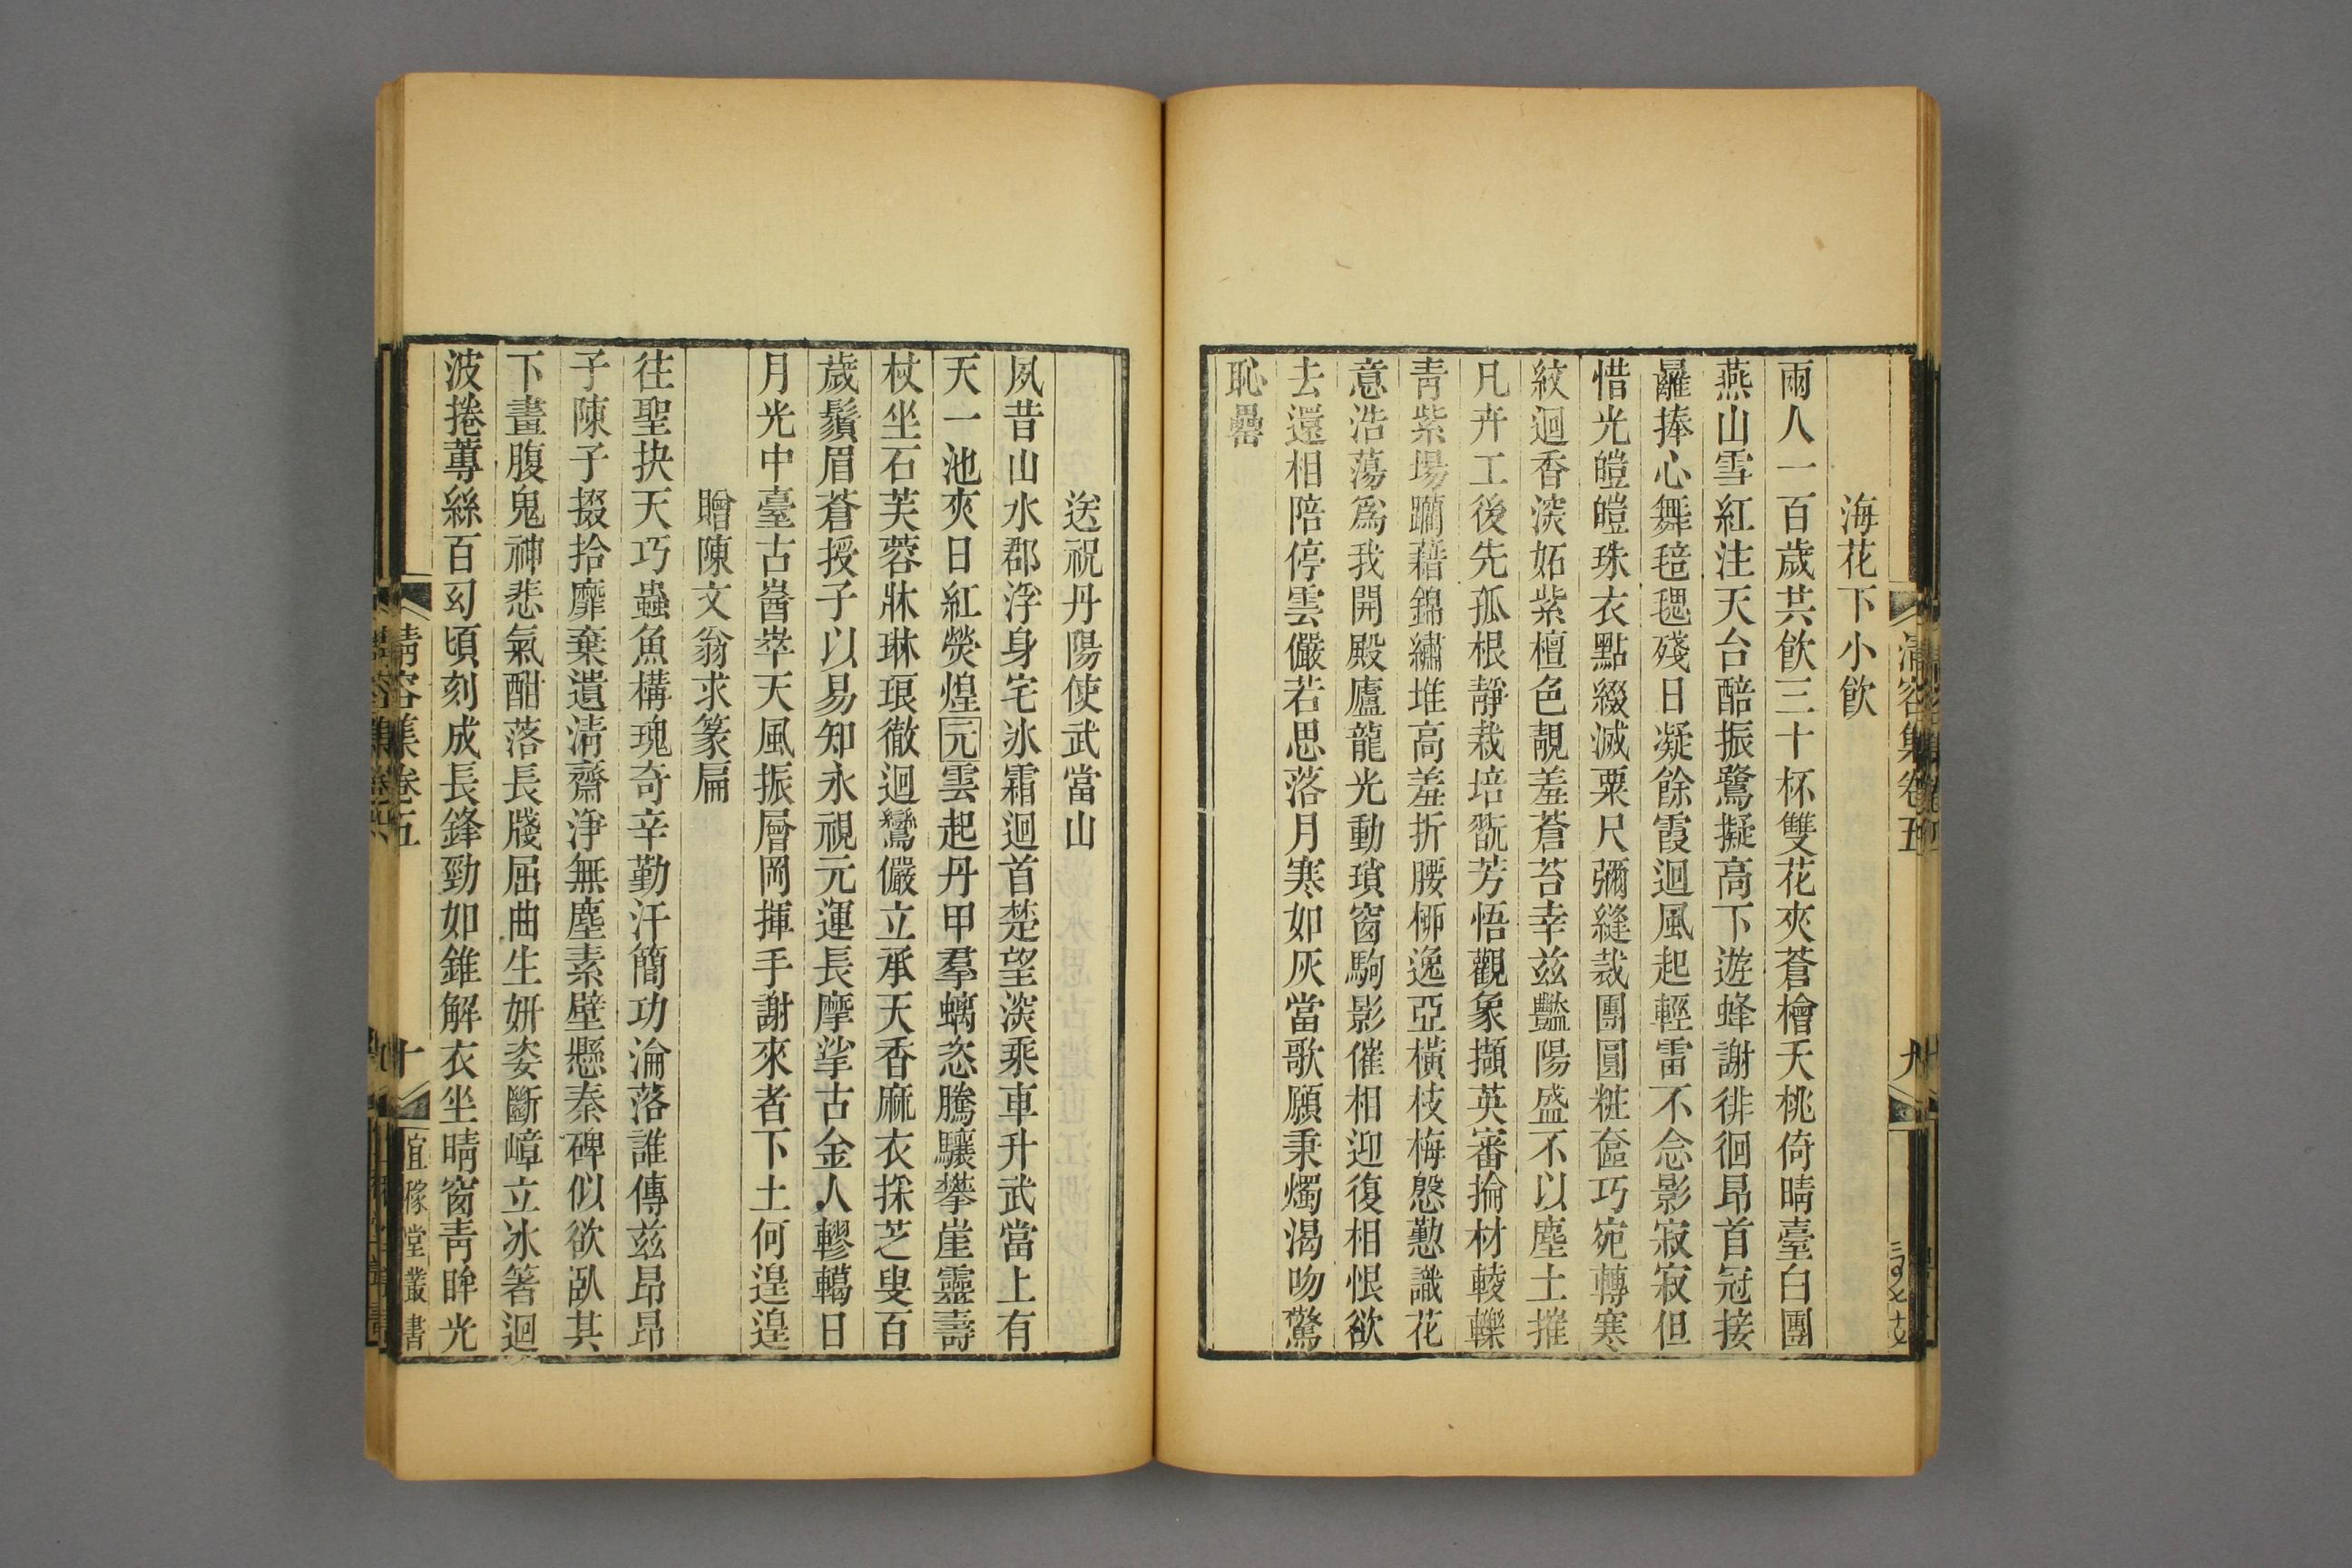 清容集卷五
九
海花下小飲
兩人一百歲共飲三十杯雙花夾蒼檜夭桃倚晴臺白團
燕山雪紅注天台醅振鷺擬高下遊蜂謝徘徊昂首冠接
䍦捧心舞毰毸殘日凝餘霞迴風起輕雷不念影寂寂但
惜光皚皚珠衣點綴滅粟尺彌縫裁團圓粧奩巧宛轉寒
紋迴香深妬紫檀色靚羞蒼苔幸茲豔陽盛不以塵土摧
凡卉工後先孤根靜栽培翫芳悟觀象擷英審掄材輘轢
青紫場躪藉錦繡堆高羞折腰柳逸亞橫枝梅慇懃識花
意浩蕩爲我開殿廬龍光動瑣窗駒影催相迎復相恨欲
去還相陪停雲儼若思落月寒如灰當歌願秉燭渴吻驚
恥罍
送祝丹陽使武當山
夙昔山水郡浮身宅冰霜迴首楚望深乘車升武當上有
天一池夾日紅熒煌元雲起丹甲羣螭恣騰驤攀崖靈壽
杖坐石芙蓉牀琳琅徹迴鸞儼立承天香麻衣採芝叟百
歲鬚眉蒼授子以易知永視元運長摩挲古金人轇轕日
月光中臺古嶅崒天風振層岡揮手謝來者下土何遑遑
贈陳文翁求篆扁
往聖抉天巧蟲魚構瑰奇辛勤汗簡功淪落誰傳茲昂昂
子陳子掇拾靡棄遺清齋淨無塵素壁懸秦碑似欲臥其
下畫腹鬼神悲氣酣落長牋屈曲生妍姿斷嶂立冰箸迴
波捲蓴絲百幻頃刻成長鋒勁如錐解衣坐晴窗青眸光
清容集卷五
十
宜稼堂叢書